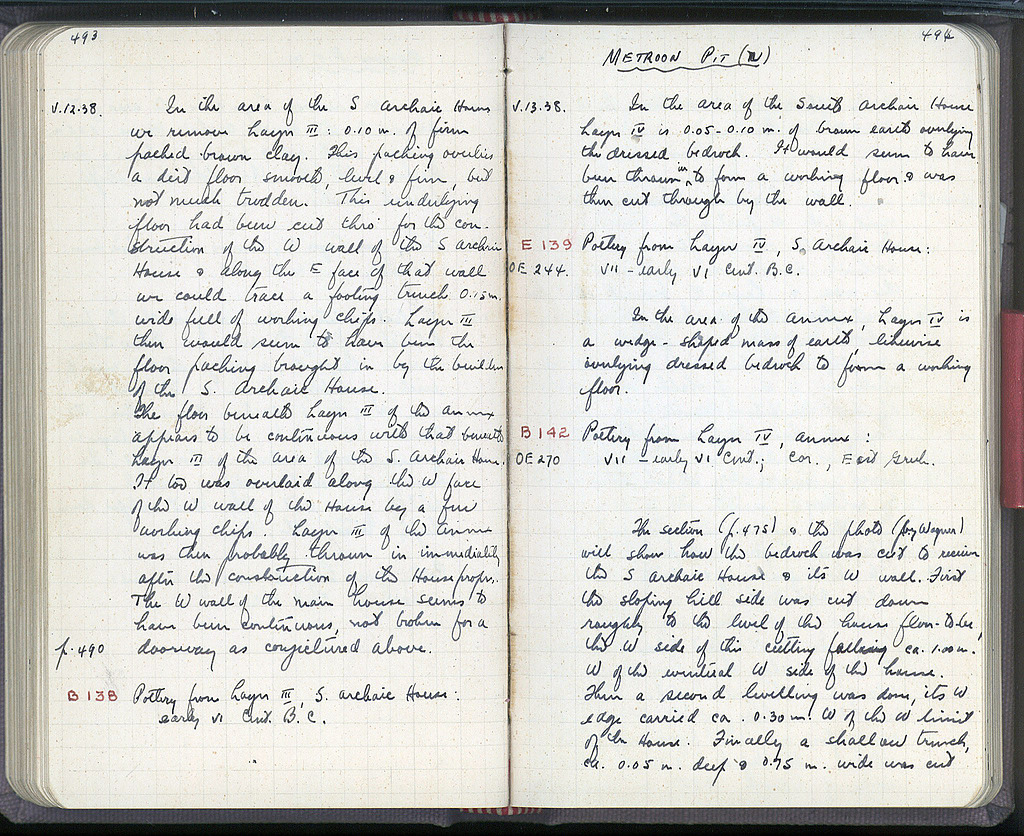 493
V.12.38.
In the area of the S Archaic House
we remove Layer III: 0.10 m. of firm
packed brown clay. This packing overlies
a dirt floor smooth, level & firm, but
not much trodden. This underlying
floor had been cut thro' for the con-
struction of the W wall of the S Archaic
House & along the E face of that wall
we could trace a footing trench 0.15 m.
wide full of working chips. Layer III
then would seem to have been the
floor packing brought in by the builders
of the S. Archaic House.
The floor beneath Layer III of the annex
appears to be continuous with that beneath
Layer III of the area of the S. Archaic House.
It too was overlaid along the W face
of the W wall of the House by a few
working chips. Layer III of the annex
was then probably thrown in immediately
after the construction of the House proper.
The W wall of the main house seems to
have been continuous, not broken for a
p. 490
doorway as conjectured above.
B 138 Pottery from Layer III, S. Archaic House:
early VI Cent. B.C.
494
METROON PIT (IV)
V.13.38.
In the area of the South Archaic House
Layer IV is 0.05-0.10 m. of brown earth overlying
the dressed bedrock. It would seem to have
been thrown in to form a working floor & was
then cut through by the wall.
E 139 Pottery from Layer IV, S. Archaic House:
OE 244. VII - early VI Cent. B.C.
In the area of the annex, Layer IV is
a wedge-shaped mass of earth, likewise
overlying dressed bedrock to form a working
floor.
B 142 Pottery from Layer IV, annex:
OE 270 VII - early VI Cent.; Cor., East Greek.
The section (p. 475) & the photo (by Wagner)
will show how the bedrock was cut to receive
the S Archaic House & its W wall. First
the sloping hill side was cut down
roughly to the level of the house floor-to-be,
the W side of this cutting falling ca. 1.00 m.
W of the eventual W side of the house.
Then a second levelling was done, its W
edge carried ca. 0.30 m. W of the W limit
of the House. Finally a shallow trench,
ca. 0.05 m. deep & 0.75 m. wide was cut